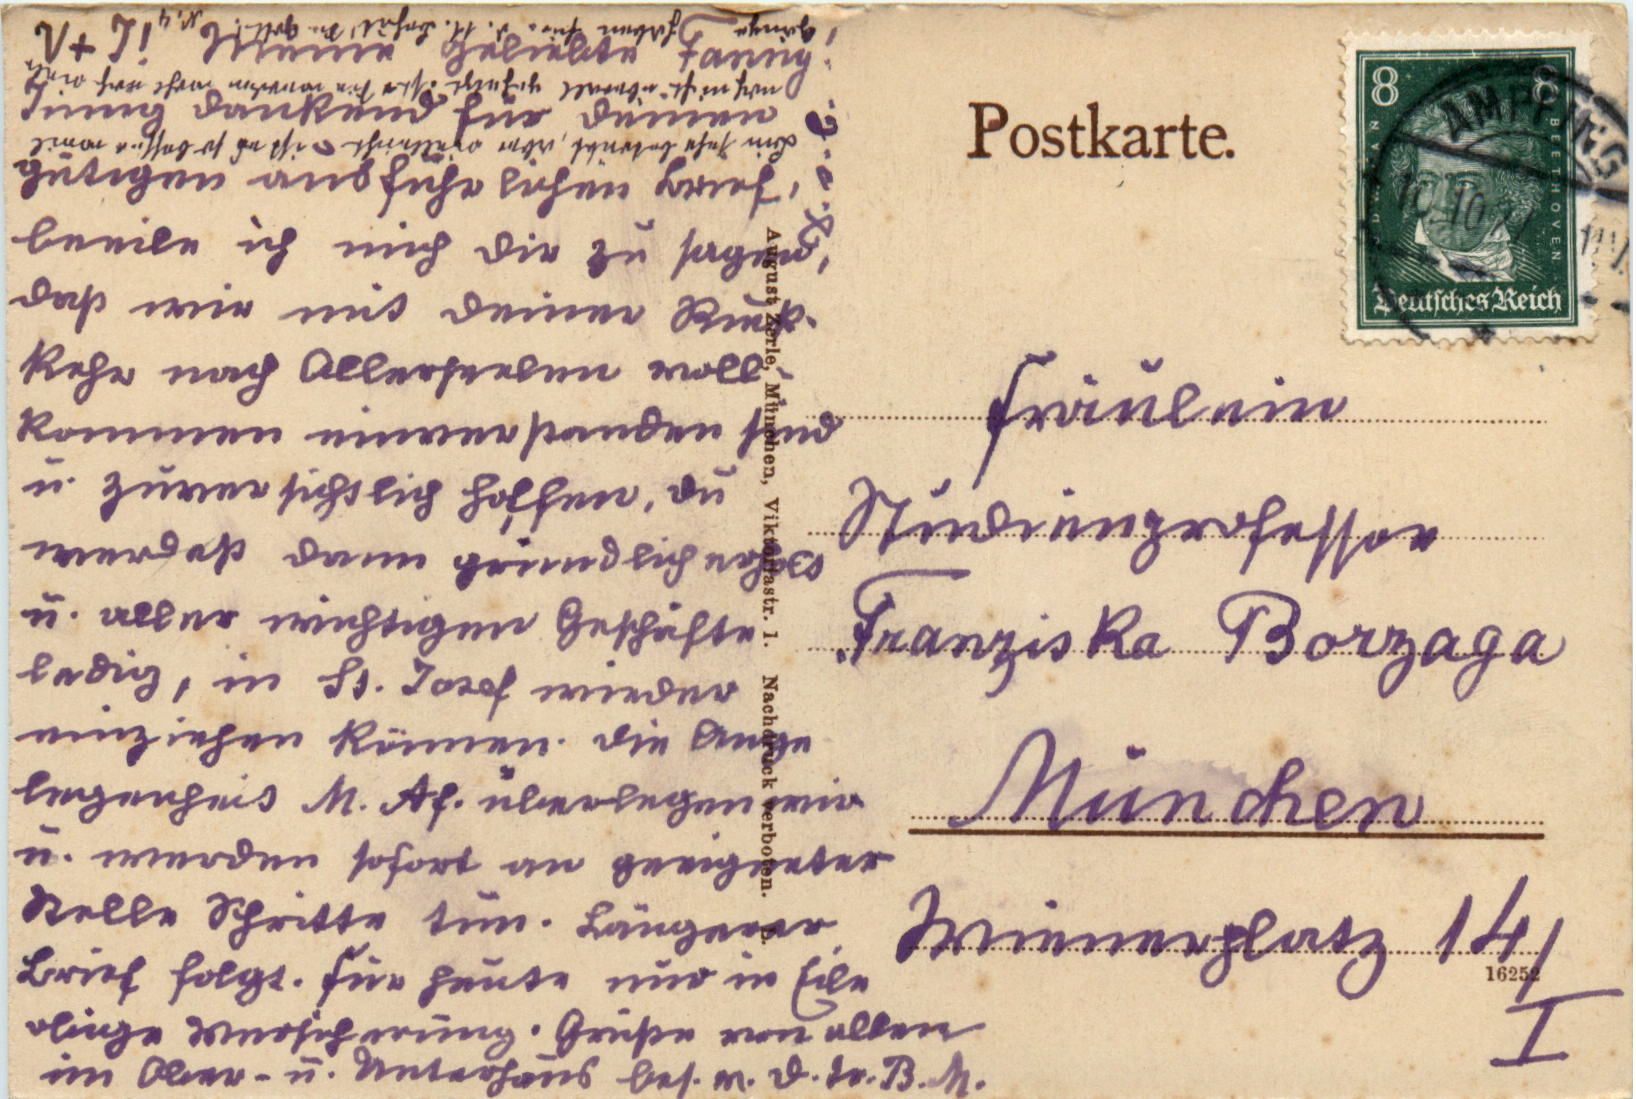 V + J! Meine geliebte Fanny!
Innig dankend für deinen
gütigen ausführlichen Brief,
beeile ich mich dir zu sagen,
daß wir mit deiner Rück-
kehr nach Allerseelen voll-
kommen einverstanden sind
u. zuversichtlich hoffen, du
werdest dann gründlich erholt
u. aller wichtigen Geschäfte
ledig, in St. Josef wieder
einziehen können. Die Ange
legenheit M. Af. überlegen wir
u. werden sofort an geeigneter
Stelle Schritte tun. Längerer
Brief folgt. Für heute nur in Eile
obige Versicherung. Grüße von allen
im Ober- u. Unterhaus bes. v. d. tr. B. M.
August Zerle, München, Viktoriastr. 1. Nachdruck verboten.
Postkarte.
8 8
LUDWIG VAN BEETHOVEN
Deutsches Reich
AMPFING
Fräulein
Studienprofessor
Franziska Borzaga
München
Wienerplatz 14/
I
16252